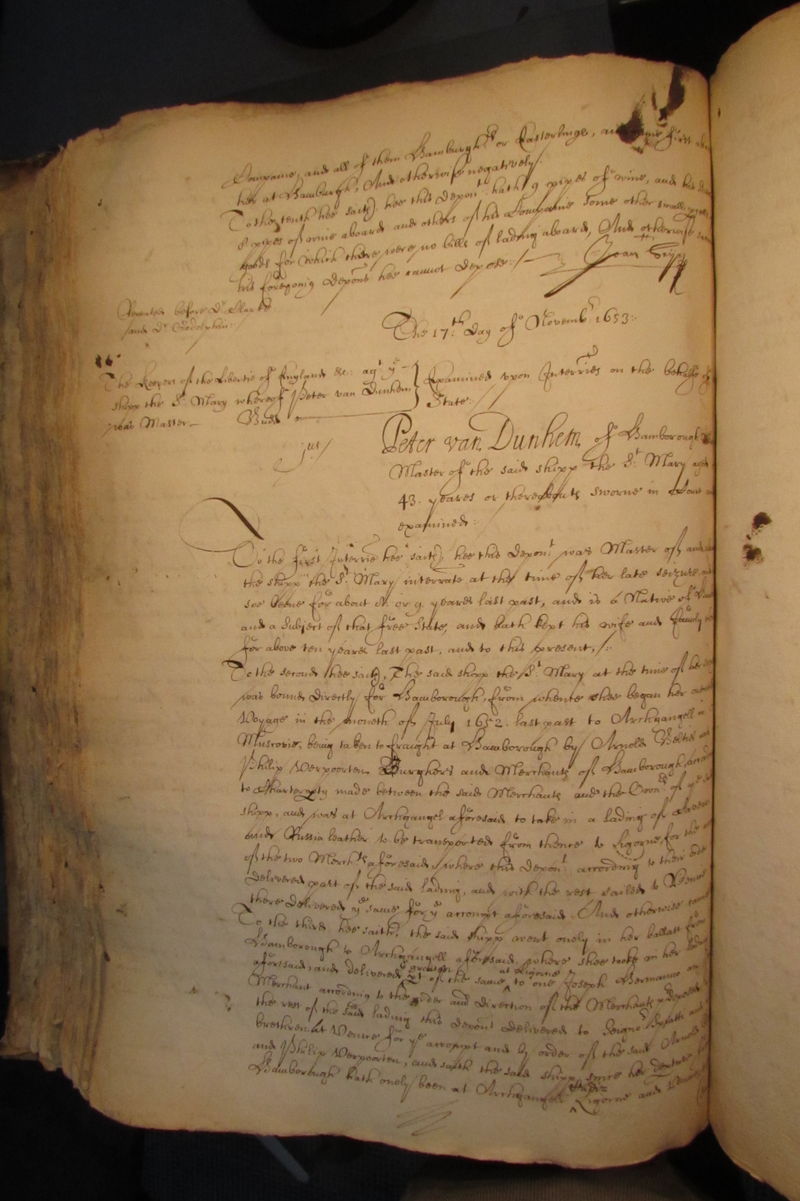 Companie, and all of them Hamburghrs or Easterlings, and
hee at Hamburgh. And otherwise negatively.
To the tenth hee saith hee this deponent hath 9 pipes of wine, and his
8 pipes of wine aboard and others of his Companie some other small
goods for which there were no bills of lading aboard, And otherwise
his foregoeing deposition hee cannot depose./
Repeated before Dr Clarke
and Dr Godolphin:
The 17th day of Novembr 1653:
The Keepers of the Libertie of England &c: agt ye
shipp the St Mary whereof Peter van Dunhem
was Master.
Examined upon Interries on the behalfe of
State:
jus/
Peter van Dunhem of Hamborough
Master of the said shipp the St Mary aged
43. yeares or thereabouts sworne in
examined:
To the first Interrie hee saith hee this depont was Master of
the shipp the St Mary interrate at the time of her late seizure
soe beene for about 8. or 9 yeares last past, and is a Native of
and a Subject of that free State, and hath kept his wife and family
for above ten yeares last past, and to this present./:
To the second hee saith, The said shipp the St Mary at the time of her
was bound directly for Hamborough, from whence shee began her
Voyage in the moneth of July 1652. last past to Archangell in
Muscovie, being taken to fraught at Hamborough by Arnold Beltes
Philip Verpoorten Burghers and Merchants of Hamborough
to Charterparty made between the said Merchants and the
shipp, and was at Archangel aforesaid to take in a lading of
and Russia leather to be transported from thence to Ligorne, for the
of the two Merchts aforesaid, where this depont according to their
delivered part of the said lading, and with the rest sailed to Venice
there delivered ye same for ye accompt aforesaid. And otherwise
To the third hee saith, the said shipp went onely in her ballast from
Hamborough to Archangell aforesaid, where shee tooke in her lading
aforesaid, and delivered pt of the same at Ligorne to one Joseph Hermans
Merchant according to the order and direction of the Merchants
the rest of the said lading this depont delivered to Seignr
brethren at Venice for ye accompt and by order of the said Arnold
and Philip Verpoorten, and saith the said shipp since her
Hamborough hath onely been at Archangell Ligorne and